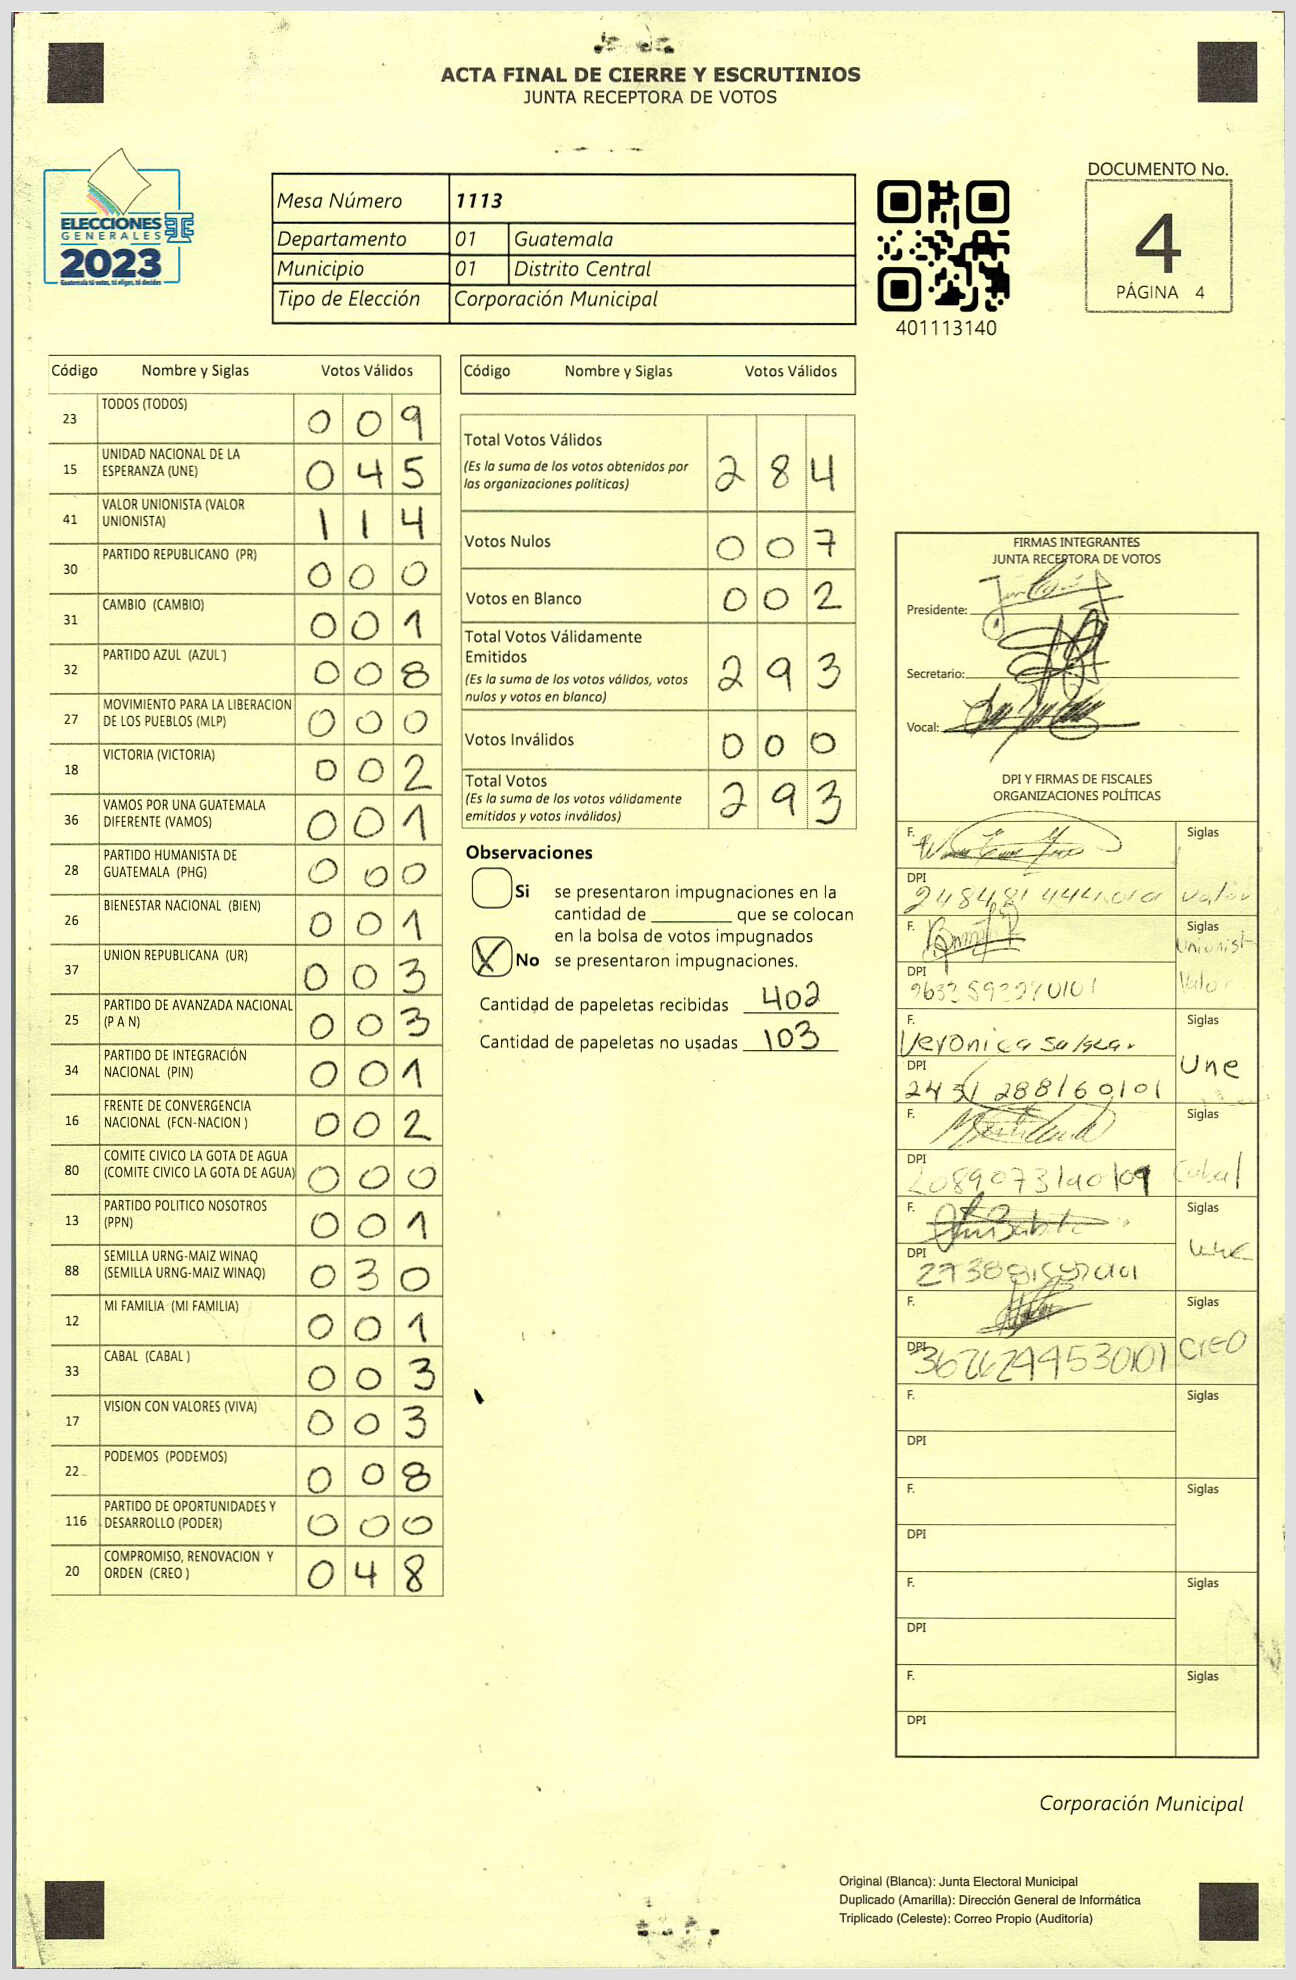 ACTA FINAL DE CIERRE Y ESCRUTINIOS
JUNTA RECEPTORA DE VOTOS
ELECCIONES
GENERALES
2023
Guatemala tú votas, tú eliges, tú decides
Mesa Número 1113
Departamento 01 Guatemala
Municipio 01 Distrito Central
Tipo de Elección Corporación Municipal
401113140
DOCUMENTO No.
4
PÁGINA 4
Código Nombre y Siglas Votos Válidos
23 TODOS (TODOS) 0 0 9
15 UNIDAD NACIONAL DE LA
ESPERANZA (UNE) 0 4 5
41 VALOR UNIONISTA (VALOR
UNIONISTA) 1 1 4
30 PARTIDO REPUBLICANO (PR) 0 0 0
31 CAMBIO (CAMBIO) 0 0 1
32 PARTIDO AZUL (AZUL) 0 0 8
27 MOVIMIENTO PARA LA LIBERACION
DE LOS PUEBLOS (MLP) 0 0 0
18 VICTORIA (VICTORIA) 0 0 2
36 VAMOS POR UNA GUATEMALA
DIFERENTE (VAMOS) 0 0 1
28 PARTIDO HUMANISTA DE
GUATEMALA (PHG) 0 0 0
26 BIENESTAR NACIONAL (BIEN) 0 0 1
37 UNION REPUBLICANA (UR) 0 0 3
25 PARTIDO DE AVANZADA NACIONAL
(P A N) 0 0 3
34 PARTIDO DE INTEGRACIÓN
NACIONAL (PIN) 0 0 1
16 FRENTE DE CONVERGENCIA
NACIONAL (FCN-NACION ) 0 0 2
80 COMITE CIVICO LA GOTA DE AGUA
(COMITE CIVICO LA GOTA DE AGUA) 0 0 0
13 PARTIDO POLITICO NOSOTROS
(PPN) 0 0 1
88 SEMILLA URNG-MAIZ WINAQ
(SEMILLA URNG-MAIZ WINAQ) 0 3 0
12 MI FAMILIA (MI FAMILIA) 0 0 1
33 CABAL (CABAL ) 0 0 3
17 VISION CON VALORES (VIVA) 0 0 3
22 PODEMOS (PODEMOS) 0 0 8
116 PARTIDO DE OPORTUNIDADES Y
DESARROLLO (PODER) 0 0 0
20 COMPROMISO, RENOVACION Y
ORDEN (CREO ) 0 4 8
Código Nombre y Siglas Votos Válidos
Total Votos Válidos 2 8 4
(Es la suma de los votos obtenidos por
las organizaciones políticas)
Votos Nulos 0 0 7
Votos en Blanco 0 0 2
Total Votos Válidamente
Emitidos 2 9 3
(Es la suma de los votos válidos, votos
nulos y votos en blanco)
Votos Inválidos 0 0 0
Total Votos 2 9 3
(Es la suma de los votos válidamente
emitidos y votos inválidos)
Observaciones
Si se presentaron impugnaciones en la
cantidad de ________ que se colocan
en la bolsa de votos impugnados
X No se presentaron impugnaciones.
Cantidad de papeletas recibidas 402
Cantidad de papeletas no usadas 103
FIRMAS INTEGRANTES
JUNTA RECEPTORA DE VOTOS
Presidente:
Secretario:
Vocal:
DPI Y FIRMAS DE FISCALES
ORGANIZACIONES POLÍTICAS
F. Siglas
DPI Valor
F. Siglas
Unionist
DPI Valor
F. Veronica Siglas
DPI 2431 28816 0101 Une
F. Siglas
DPI Cabal
F. Siglas
DPI une
F. Siglas
DPI CREO
F. Siglas
DPI
F. Siglas
DPI
F. Siglas
DPI
F. Siglas
DPI
Corporación Municipal
Original (Blanca): Junta Electoral Municipal
Duplicado (Amarilla): Dirección General de Informática
Triplicado (Celeste): Correo Propio (Auditoría)